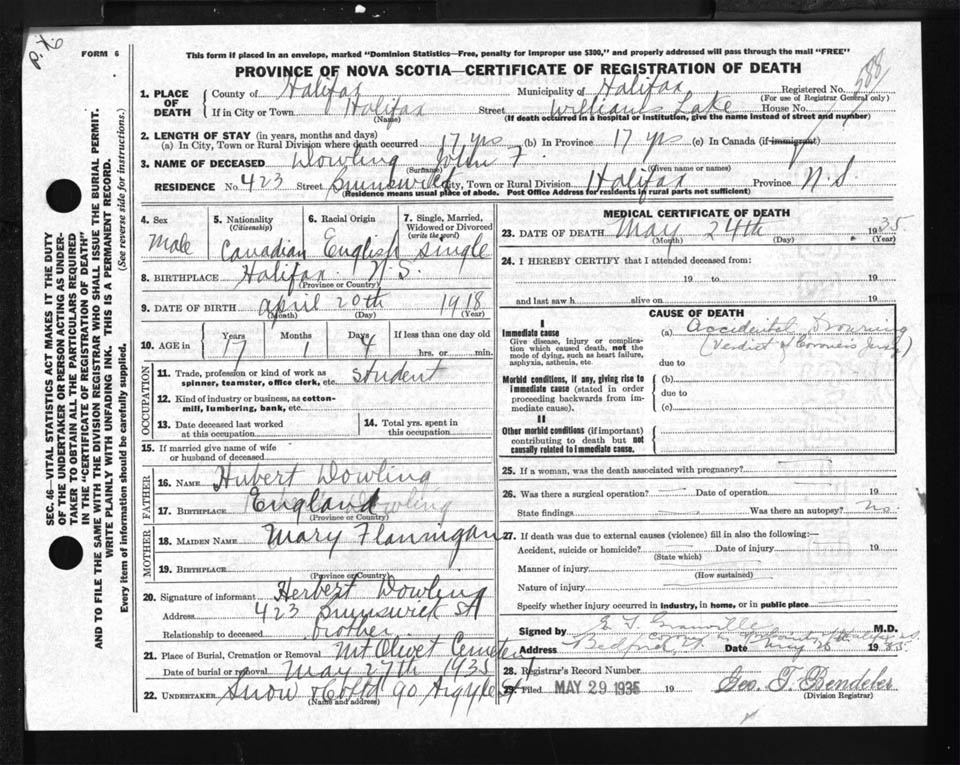 P.K.
FORM 6
This form if placed in an envelope, marked "Dominion Statistics—Free, penalty for improper use $300," and properly addressed will pass through the mail "FREE"
PROVINCE OF NOVA SCOTIA—CERTIFICATE OF REGISTRATION OF DEATH
588
1. PLACE OF DEATH { County of Halifax Municipality of Halifax Registered No.
(For use of Registrar General only)
If in City or Town Halifax Street Williams Lake House No.
(Name) (If death occurred in a hospital or institution, give the name instead of street and number)
2. LENGTH OF STAY (in years, months and days)
(a) In City, Town or Rural Division where death occurred 17 yrs (b) In Province 17 yrs (c) In Canada (if immigrant)
3. NAME OF DECEASED Dowling John F.
(Surname) (Given name or names)
RESIDENCE No. 423 Street Brunswick City, Town or Rural Division Halifax Province N.S.
(Residence means usual place of abode. Post Office Address for residents in rural parts not sufficient)
4. Sex Male
5. Nationality (Citizenship) Canadian
6. Racial Origin English
7. Single, Married, Widowed or Divorced (write the word) Single
8. BIRTHPLACE Halifax N.S.
(Province or Country)
9. DATE OF BIRTH April 20th 1918
(Month) (Day) (Year)
10. AGE in { Years 17 Months 1 Days 4 If less than one day old
hrs. or min.
OCCUPATION
11. Trade, profession or kind of work as spinner, teamster, office clerk, etc. Student
12. Kind of industry or business, as cotton-mill, lumbering, bank, etc.
13. Date deceased last worked at this occupation
14. Total yrs. spent in this occupation
15. If married give name of wife or husband of deceased
FATHER
16. NAME Hubert Dowling
17. BIRTHPLACE England
(Province or Country)
MOTHER
18. MAIDEN NAME Mary Flannigan
19. BIRTHPLACE
(Province or Country)
20. Signature of informant Herbert Dowling
Address 423 Brunswick St
Relationship to deceased brother
21. Place of Burial, Cremation or Removal Mt Olivet Cemetery
Date of burial or removal May 27th 1935
22. UNDERTAKER Snow & Co Ltd 90 Argyle St
(Name and address)
MEDICAL CERTIFICATE OF DEATH
23. DATE OF DEATH May 24th 1935
(Month) (Day) (Year)
24. I HEREBY CERTIFY that I attended deceased from:
19 to 19
and last saw h alive on 19
CAUSE OF DEATH
I
Immediate cause
Give disease, injury or complication which caused death, not the mode of dying, such as heart failure, asphyxia, asthenia, etc.
(a) Accidental Drowning
(Verdict of Coroners Jury)
due to
Morbid conditions, if any, giving rise to immediate cause (stated in order proceeding backwards from immediate cause).
(b)
due to
(c)
II
Other morbid conditions (if important) contributing to death but not causally related to immediate cause.
25. If a woman, was the death associated with pregnancy?
26. Was there a surgical operation? Date of operation 19
State findings Was there an autopsy? No.
27. If death was due to external causes (violence) fill in also the following:—
Accident, suicide or homicide? Date of injury 19
(State which)
Manner of injury
(How sustained)
Nature of injury
Specify whether injury occurred in industry, in home, or in public place
Signed by M.D.
Address Bedford Date May 1935.
28. Registrar's Record Number
29. Filed MAY 29 1935 19 Geo. T. Bendeler
(Division Registrar)
SEC. 46—VITAL STATISTICS ACT MAKES IT THE DUTY
OF THE UNDERTAKER OR PERSON ACTING AS UNDER-
TAKER TO OBTAIN ALL THE PARTICULARS REQUIRED
IN THE "CERTIFICATE OF REGISTRATION OF DEATH"
AND TO FILE THE SAME WITH THE DIVISION REGISTRAR WHO SHALL ISSUE THE BURIAL PERMIT.
WRITE PLAINLY WITH UNFADING INK. THIS IS A PERMANENT RECORD.
Every item of information should be carefully supplied. (See reverse side for instructions.)